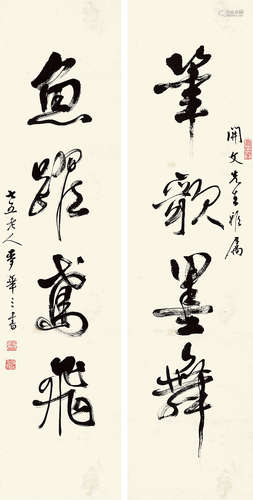 開文先生雅屬
筆歌墨舞
魚躍鳶飛
七五老人夢華之書